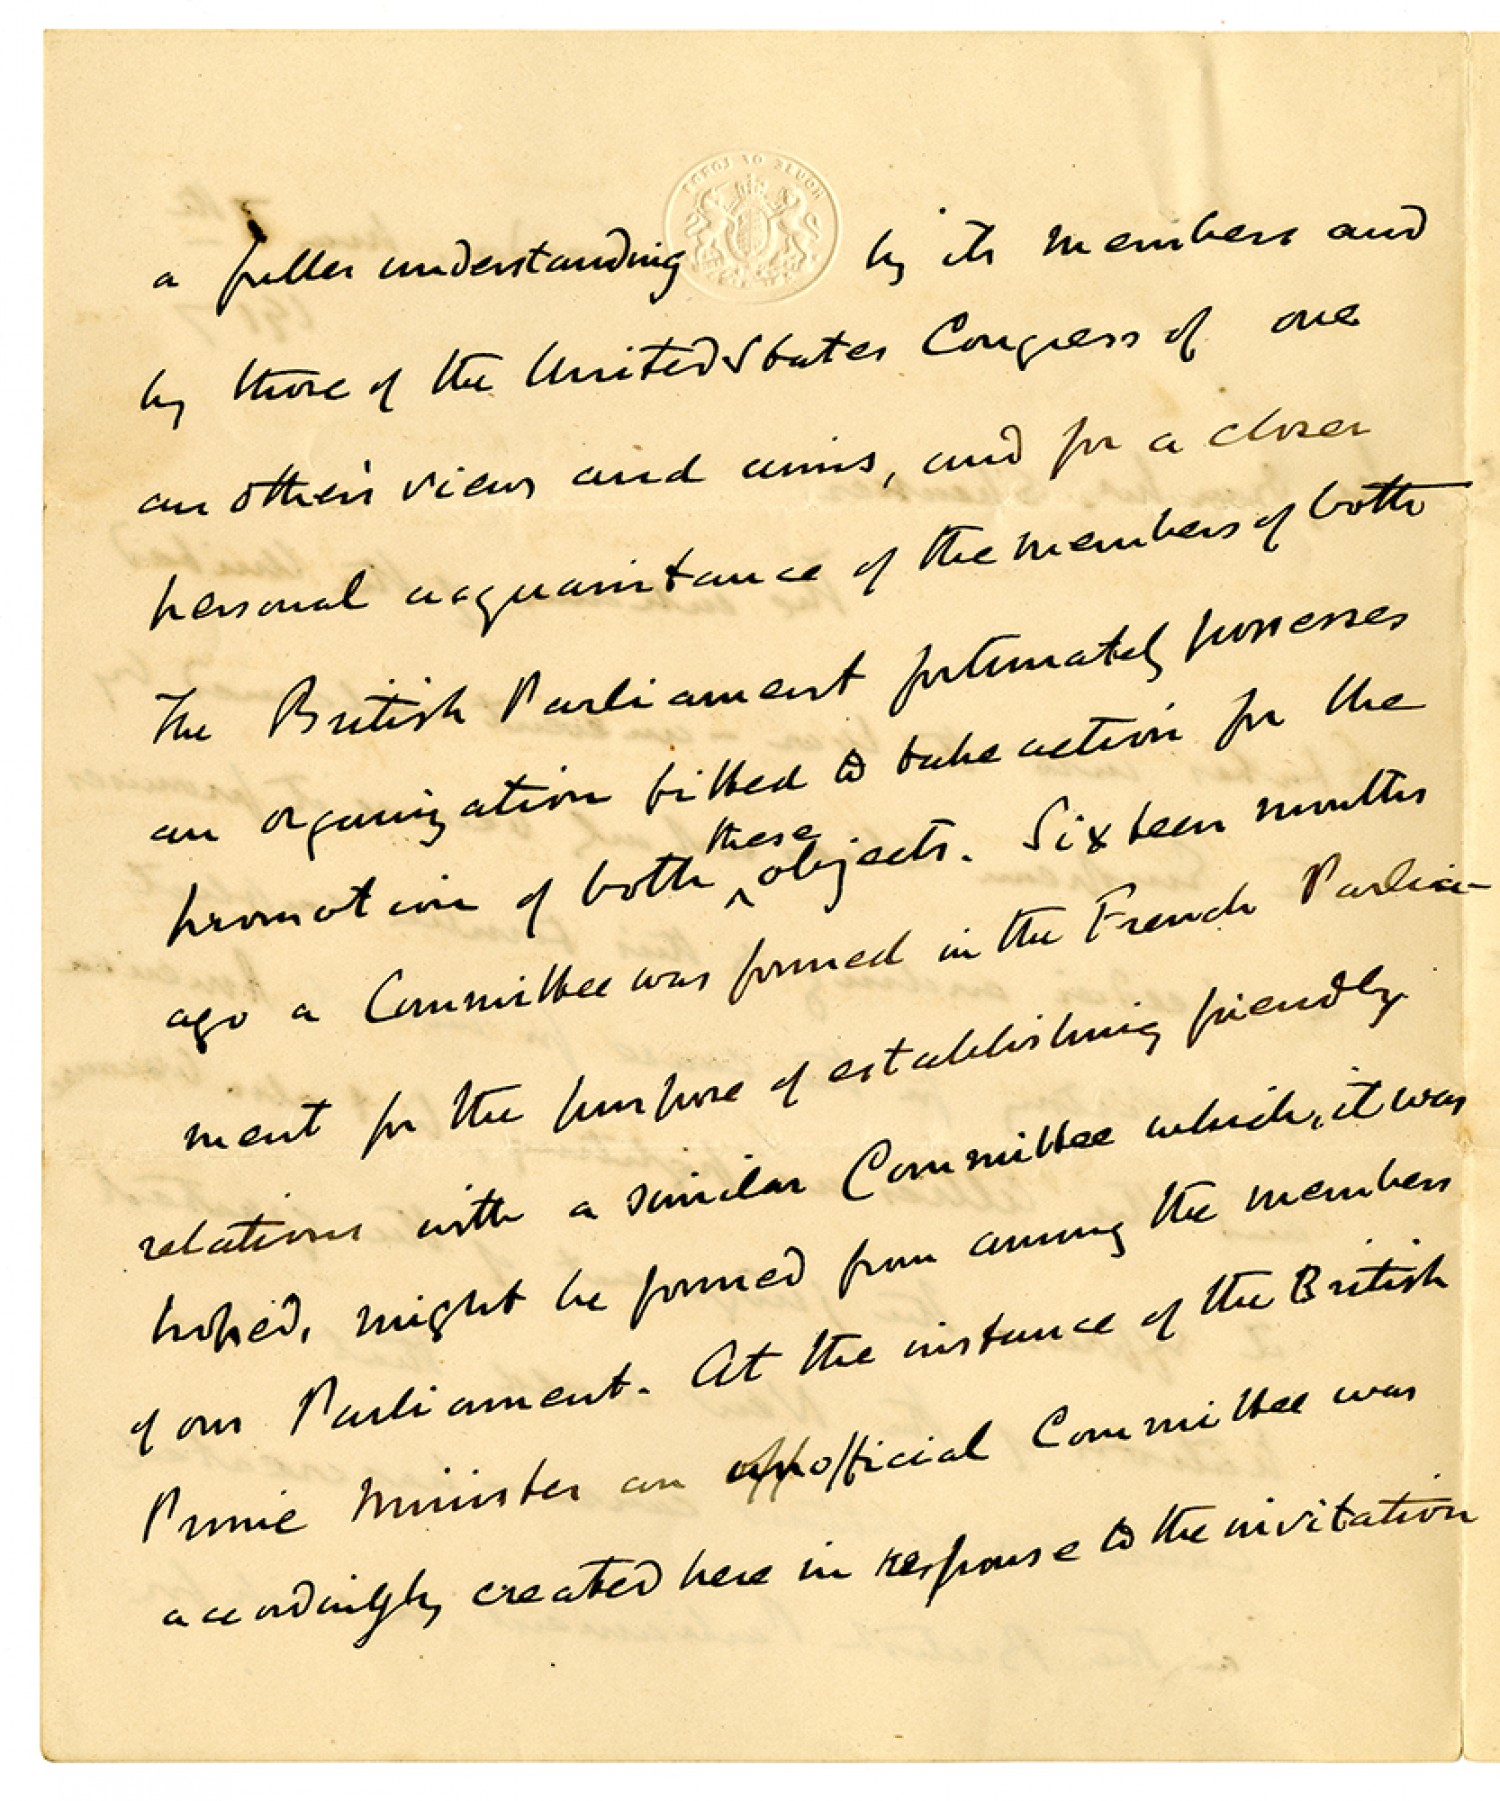 a fuller understanding by its members and
by those of the United States Congress of one
another's views and aims, and for a closer
personal acquaintance of the members of both
The British Parliament fortunately possesses
an organization fitted to take action for the
these
promotion of both objects. Sixteen months
ago a Committee was formed in the French Parlia-
ment for the purpose of establishing friendly
relations with a similar Committee which, it was
hoped, might be formed from among the members
of our Parliament. At the instance of the British
Prime Minister an official Committee was
accordingly created here in response to the invitation